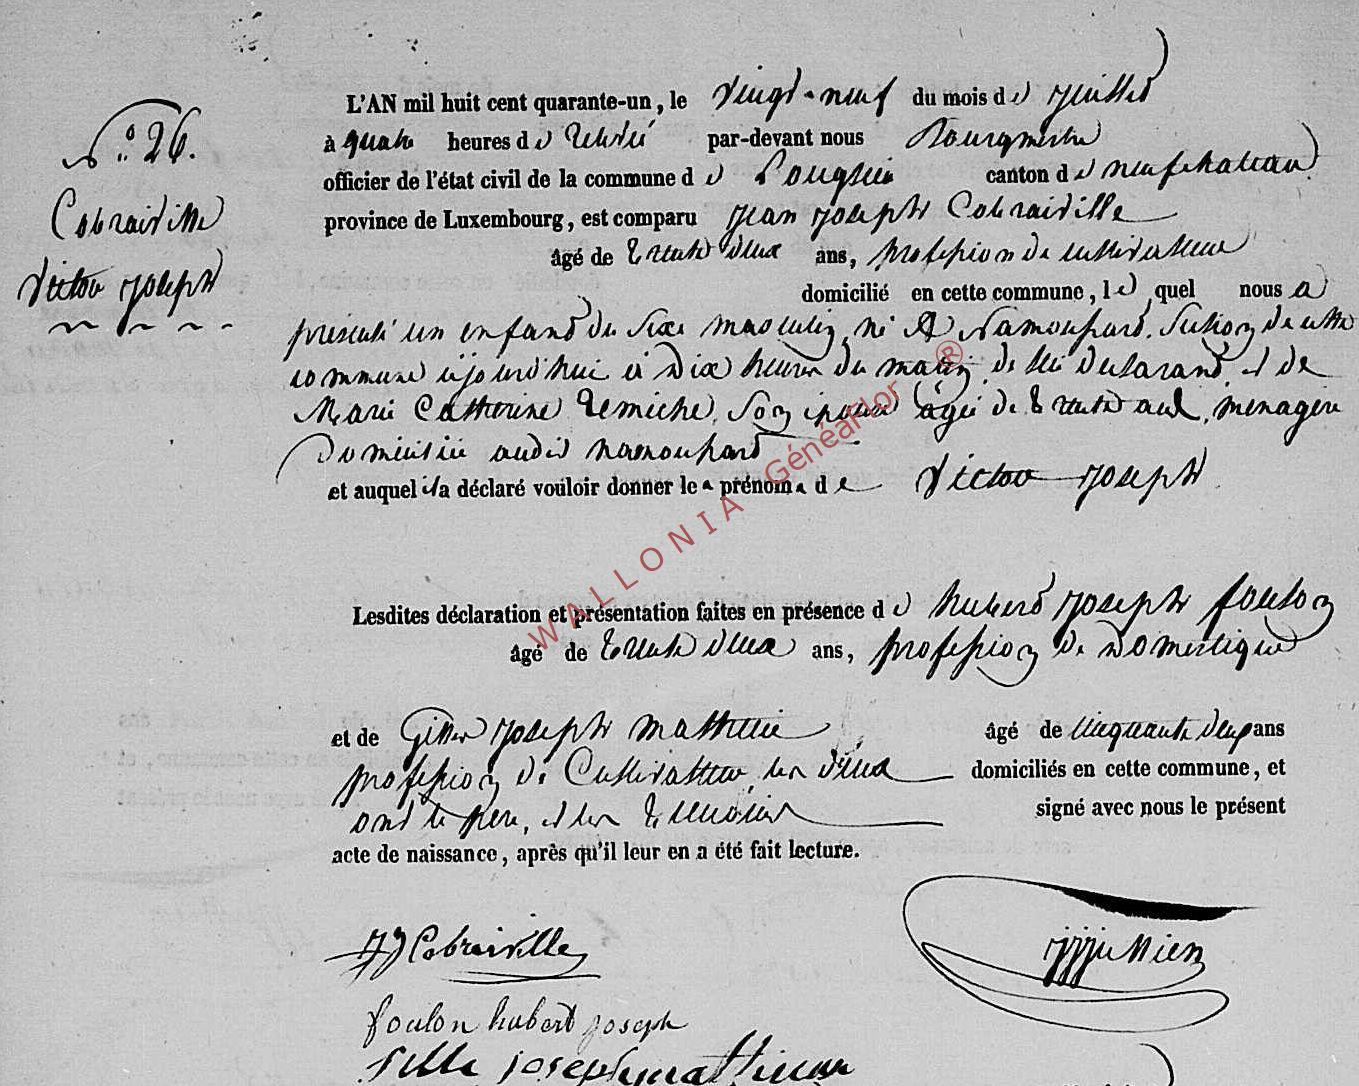 N° 26.
Cobraiville
Victor Joseph
L'AN mil huit cent quarante-un, le vingt-neuf du mois de juillet
à quatre heures de relevé par-devant nous Bourgmestre
officier de l'état civil de la commune de Longlier canton de neufchateau
province de Luxembourg, est comparu Jean Joseph Cobraiville
âgé de trente deux ans, profession de cultivateur
domicilié en cette commune, le quel nous a
présenté un enfant du sexe masculin, né à Namoussart, section de cette
commune aujourd'hui à dix heures du matin, de lui déclarant, et de
Marie Catherine son épouse âgée de trente ans, menagère
Domiciliée audit namoussart
et auquel il a déclaré vouloir donner les prénoms de Victor Joseph.
Lesdites déclaration et présentation faites en présence de hubert Joseph foulon
âgé de trente deux ans, profession de Domestique
et de Gille Joseph Mathieu âgé de cinquante deux ans
profession de Cultivateur, les deux domiciliés en cette commune, et
ont le père, et les témoins signé avec nous le présent
acte de naissance, après qu'il leur en a été fait lecture.
JJ Cobraiville
foulon hubert joseph
WALLONIA GénéaFlor ®